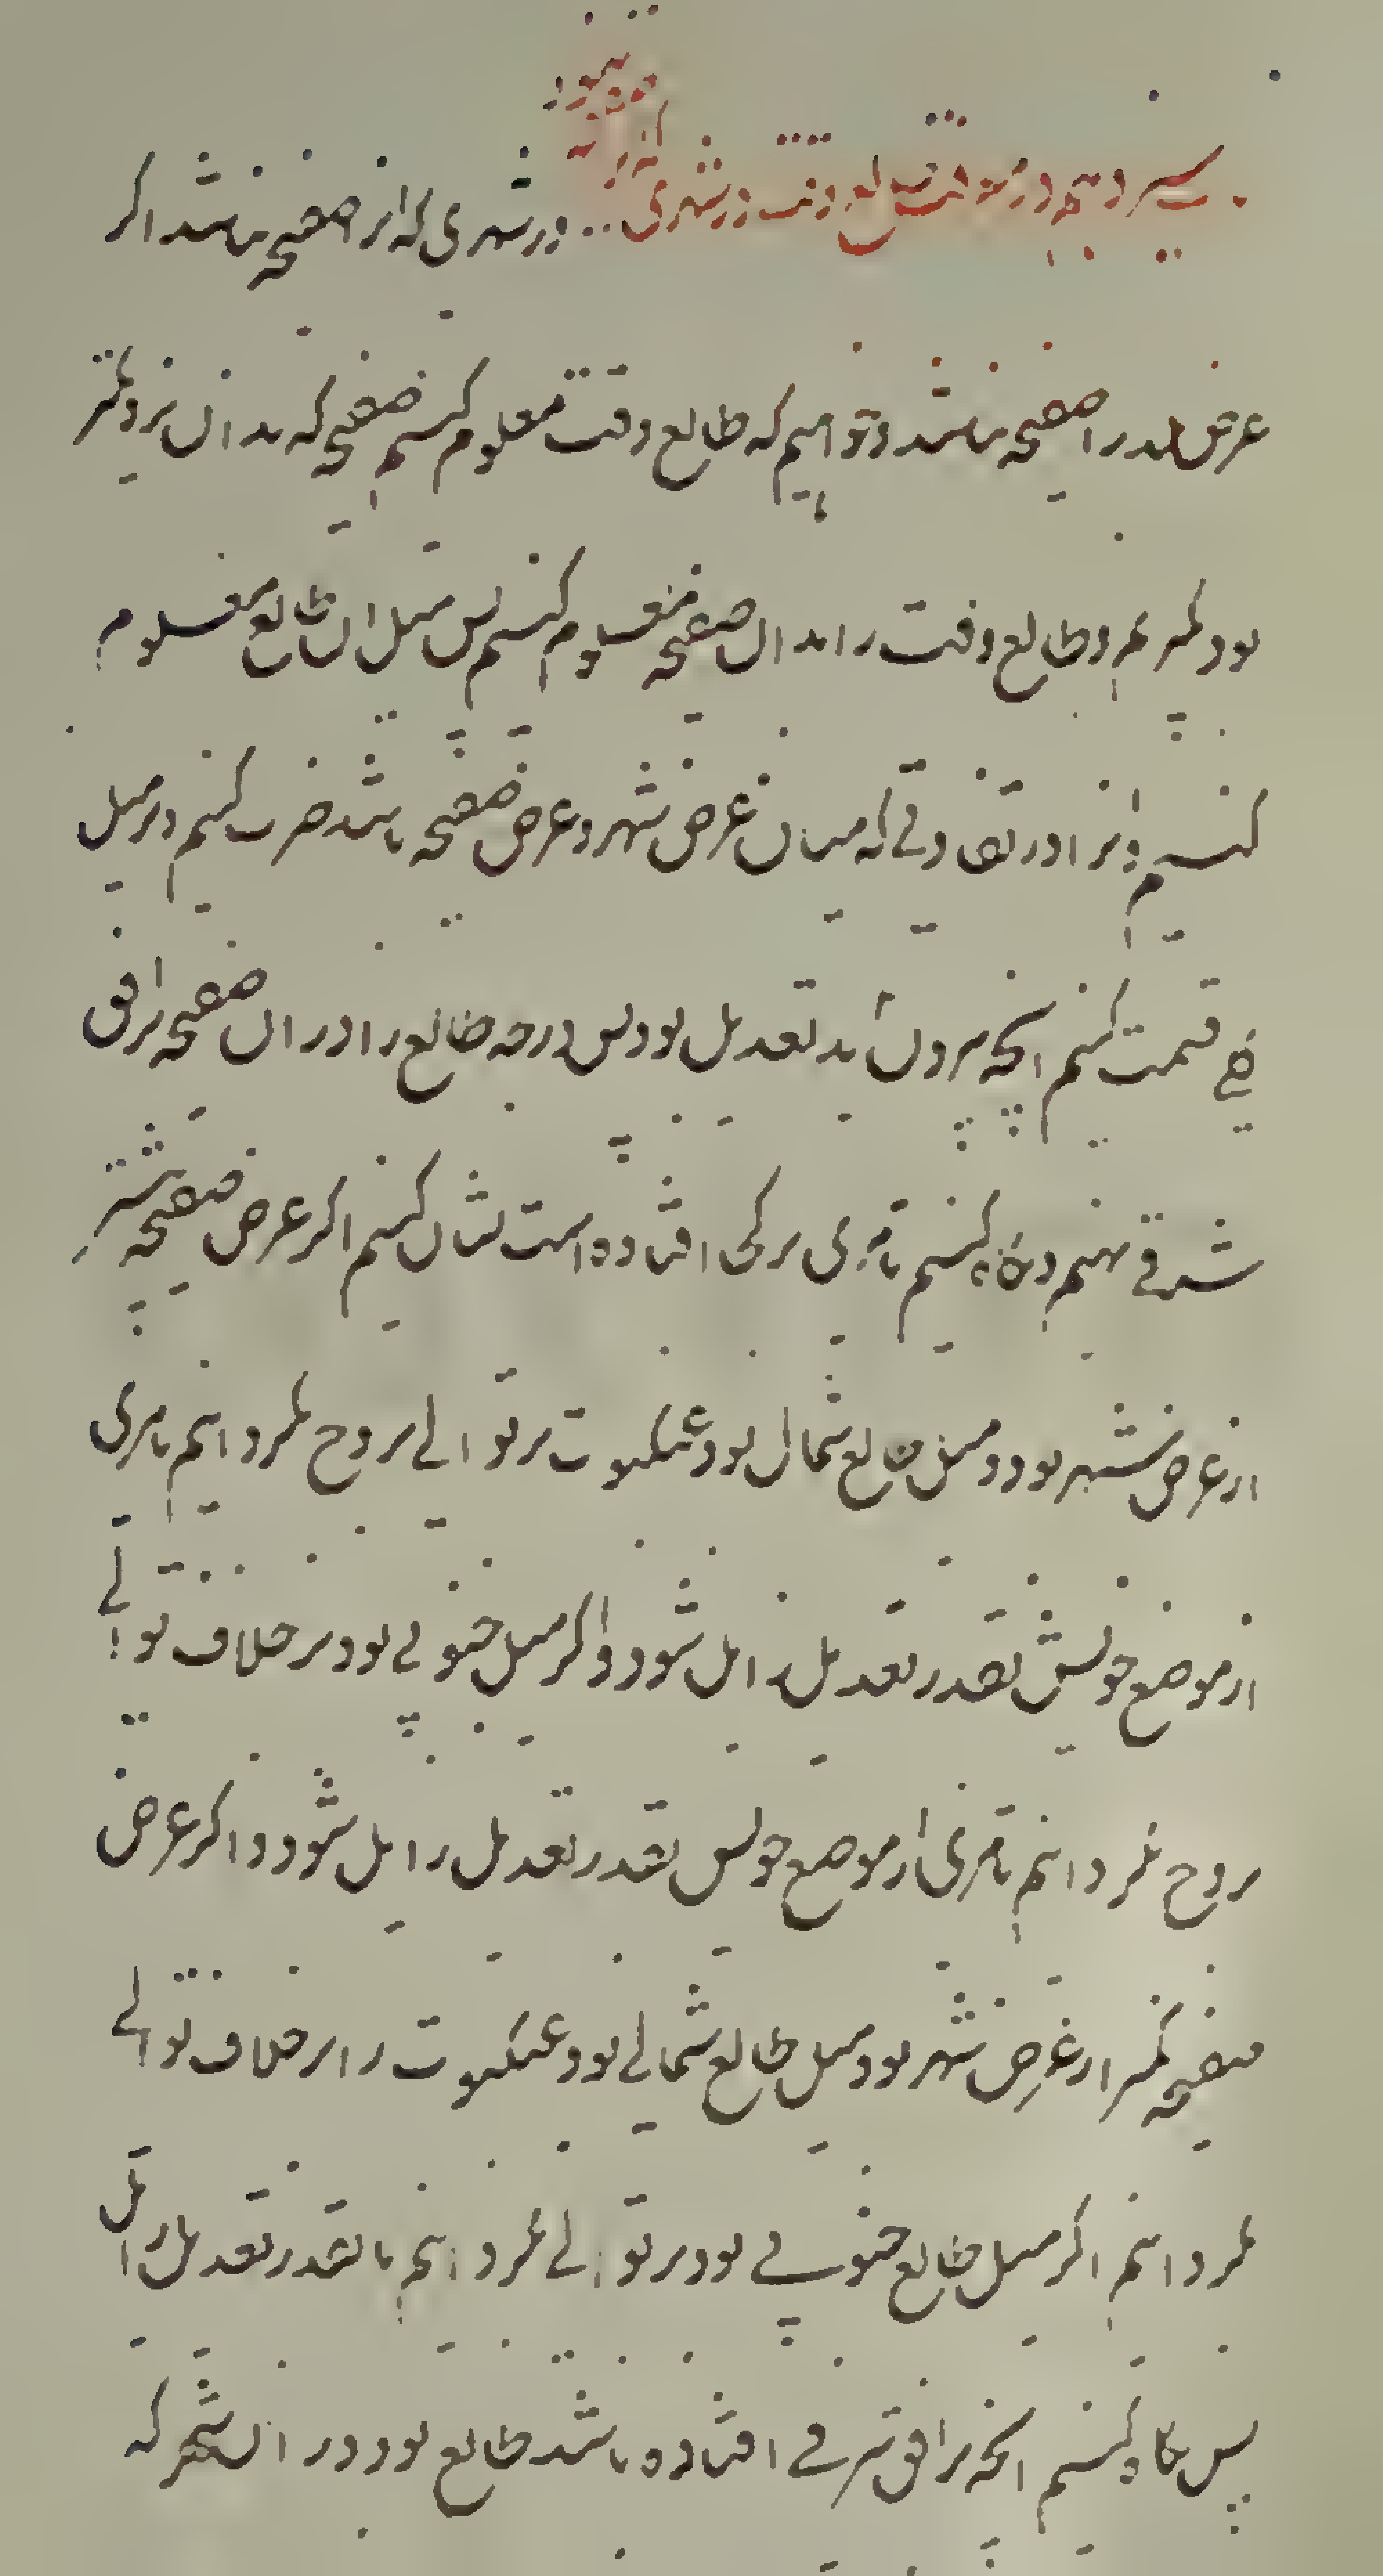 سیزدهم در معرفت طالع وقت در شهری که ... در شهری که انرا صفحه نباشد اکر
عرض بلد را صفحه نباشد و خواهیم که طالع وقت معلوم کنیم صفحه که بدان نزدیکتر
بود بکیریم و طالع وقت را بدان صفحه معلوم کنیم پس میل ان طالع معلوم
کنیم و انرا در تفاوتی که میان عرض شهر و عرض صفحه باشد ضرب کنیم و بر میل
کلی قسمت کنیم انچه بیرون اید تعدیل بود پس درجه طالع را در ان صفحه بر افق
شرقی نهیم و نکاه کنیم تا مری بر کجا افتاده است نشان کنیم اکر عرض صفحه بیشتر
از عرض شهر بود و میل طالع شمالی بود عنکبوت بر توالی بروج بکردانیم تا مری
از موضع خویش بقدر تعدیل زایل شود و اکر میل جنوبی بود بر خلاف توالی
بروج بکردانیم تا مری از موضع خویش بقدر تعدیل زایل شود و اکر عرض
صفحه کمتر از عرض شهر بود و میل طالع شمالی بود عنکبوت را بر خلاف توالی
بکردانیم اکر میل طالع جنوبی بود بر توالی بکردانیم تا بقدر تعدیل زایل
پس نکاه کنیم انچه بر افق شرقی افتاده باشد طالع بود در ان شهر که